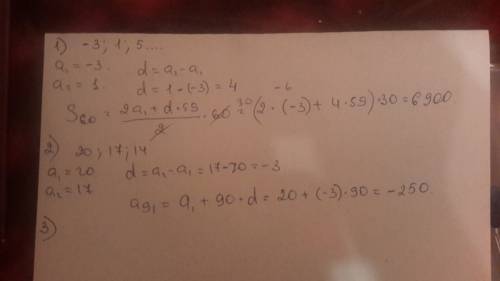 1) -3; 1; 5....
a₁ = -3. d = a₂ - a₁
a₂ = 1. d = 1 - (-3) = 4
S₆₀ = (2a₁ + d · 59)/2 · 60 = 30 (2 · (-3) + 4 · 59) · 30 = 6900. -6
2) 20; 17; 14
a₁ = 20 d = a₂ - a₁ = 17 - 20 = -3
a₂ = 17
a₉₁ = a₁ + 90 · d = 20 + (-3) · 90 = -250.
3)